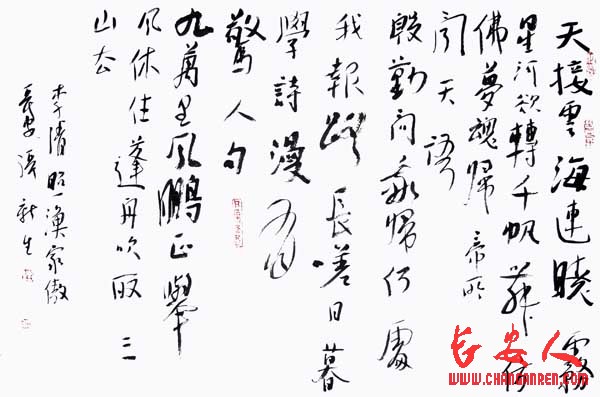 天接雲海連曉霧
星河欲轉千帆舞仿
佛夢魂歸帝所
聞天語
殷勤問我歸何處
我報路長嗟日暮
學詩漫有
驚人句
九萬里風鵬正舉
風休住蓬舟吹取三
山去
李清照漁家傲
長安人
WWW.CHANGANREN.COM